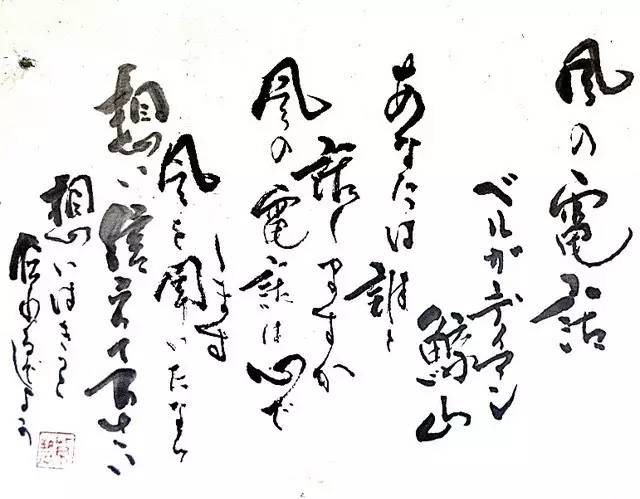 風の電話
ベルガーディアン
鯨山
あなたは誰と
話しますか
風の電話は心で
話します
風を聞いたなら
想いを伝えて下さい
想いはきっと
届くでしょう